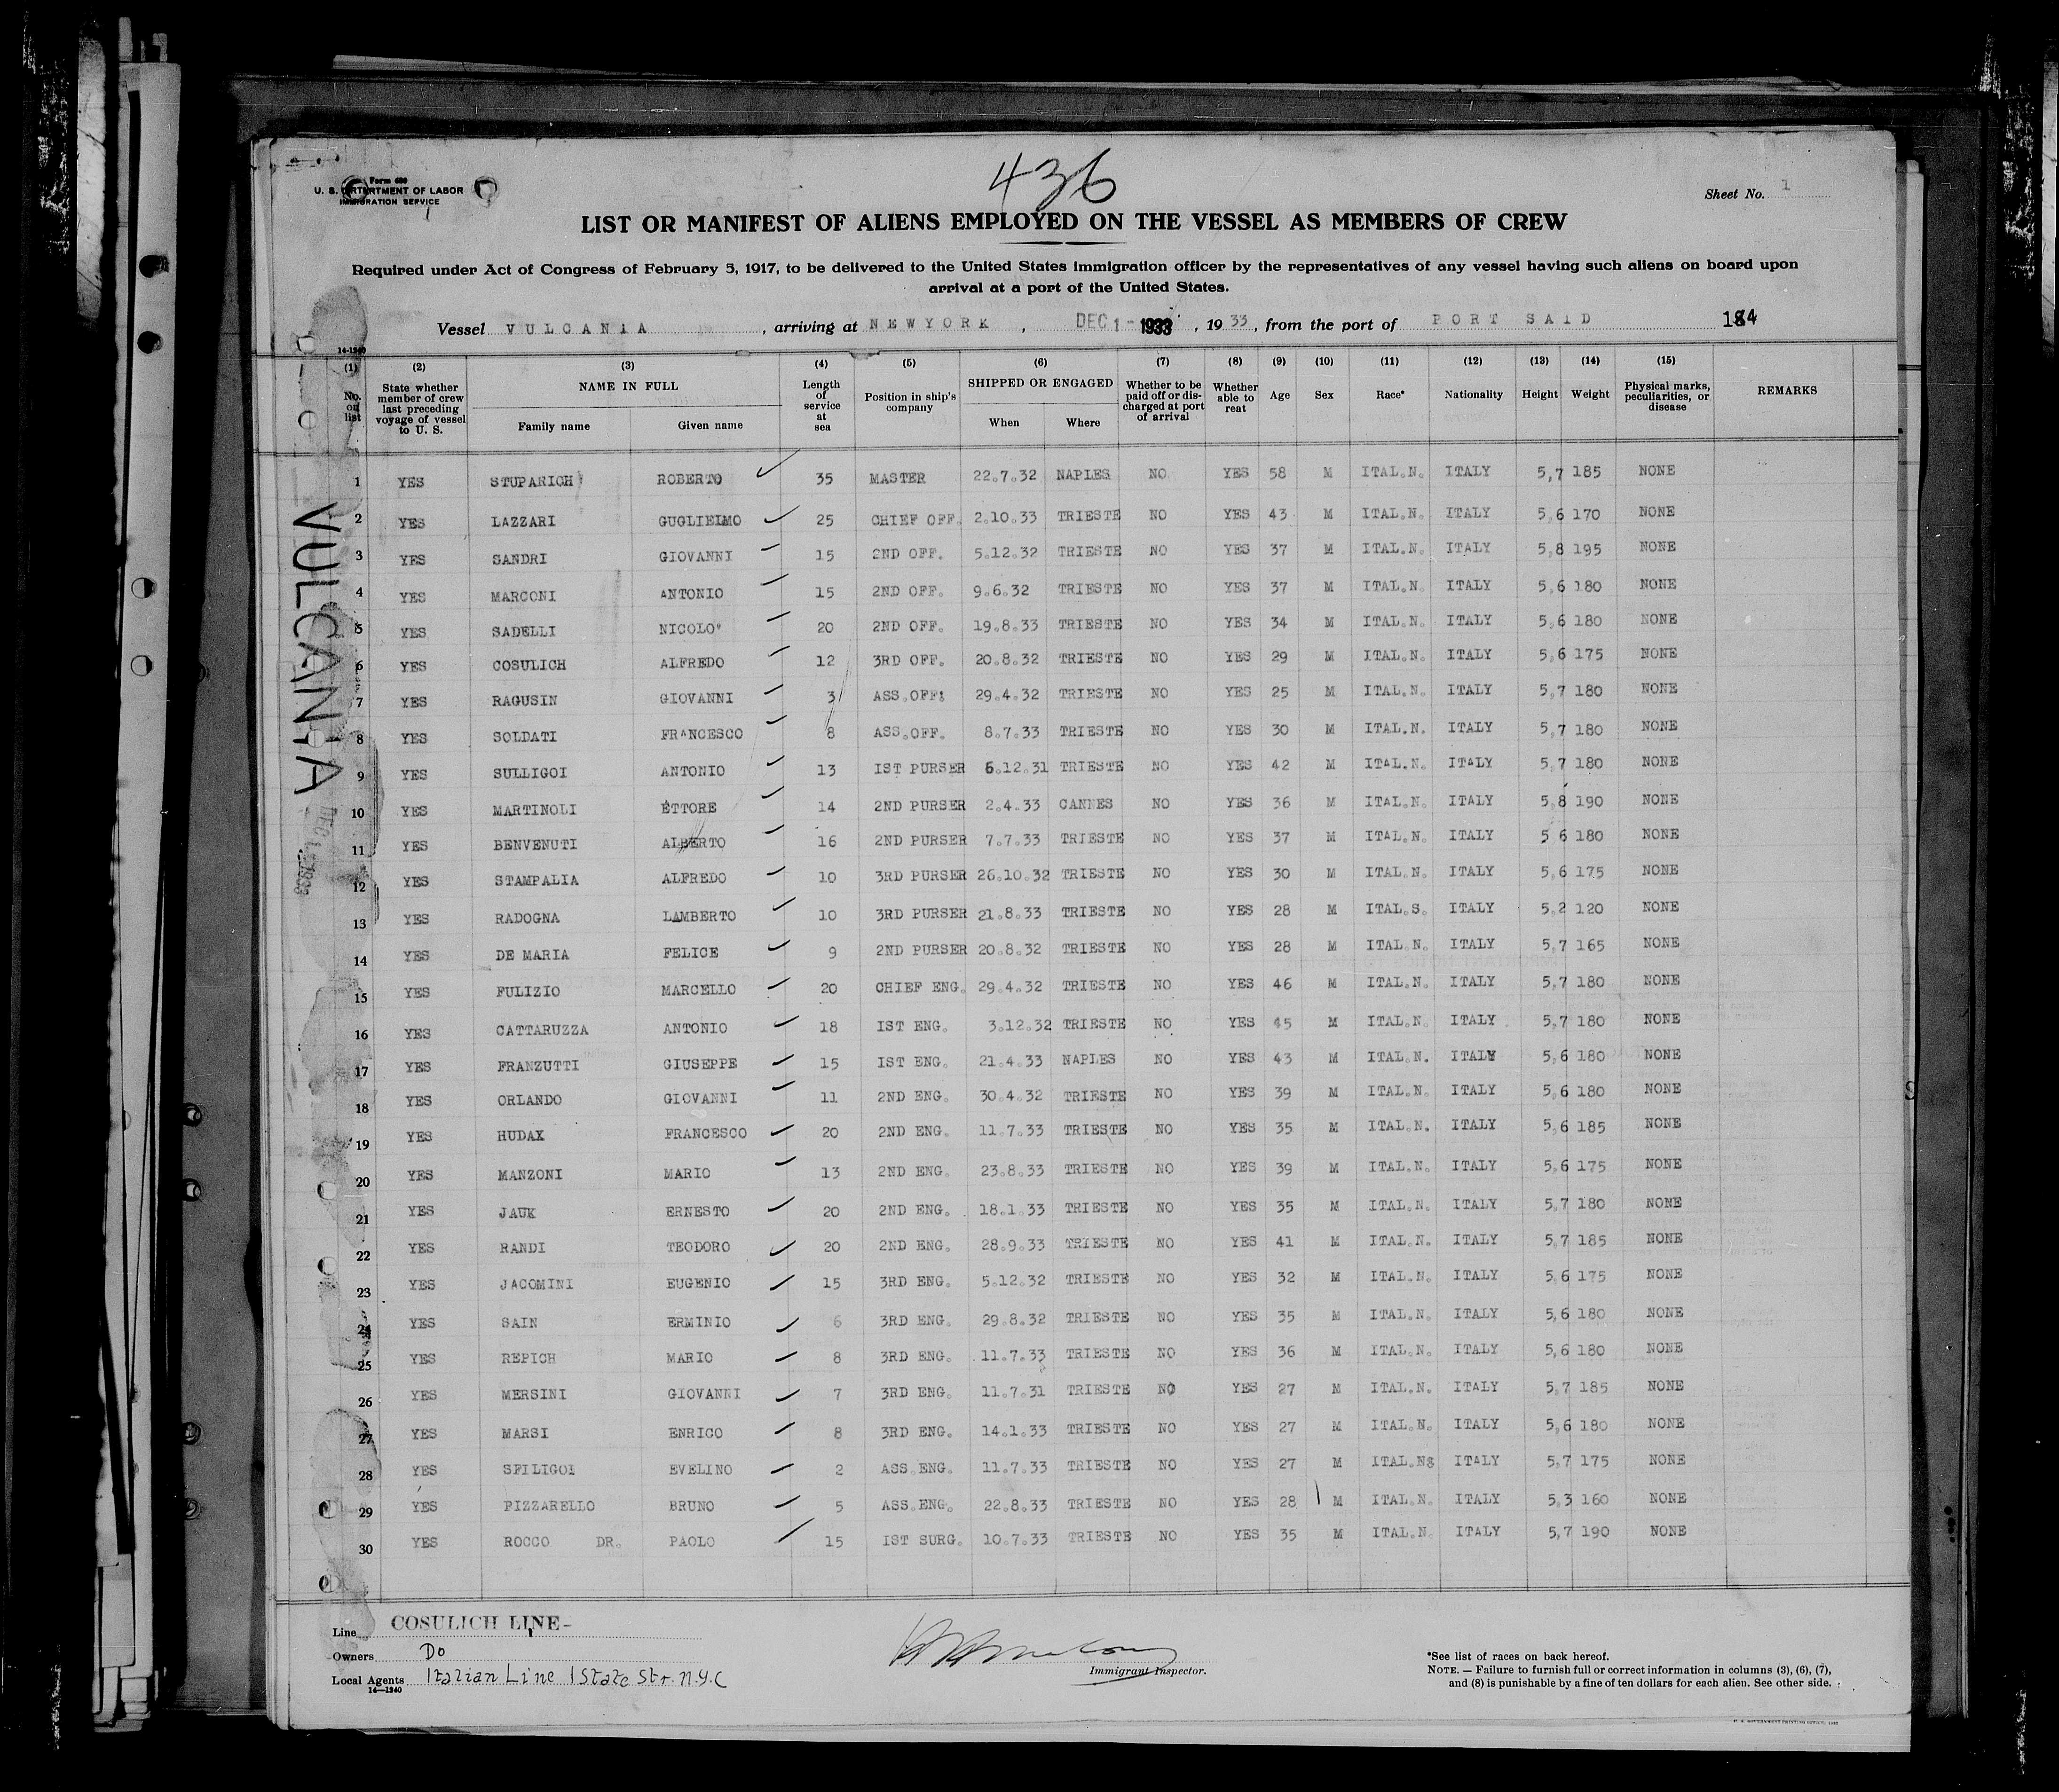 436
Form 680
U. S. DEPARTMENT OF LABOR
IMMIGRATION SERVICE
Sheet No. 1
LIST OR MANIFEST OF ALIENS EMPLOYED ON THE VESSEL AS MEMBERS OF CREW
Required under Act of Congress of February 5, 1917, to be delivered to the United States immigration officer by the representatives of any vessel having such aliens on board upon
arrival at a port of the United States.
Vessel VULCANIA, arriving at NEWYORK, DEC 1 - 1933, 1933, from the port of PORT SAID 184
14-1240
(1) (2) (3) (4) (5) (6) (7) (8) (9) (10) (11) (12) (13) (14) (15)
No. on list | State whether member of crew last preceding voyage of vessel to U. S. | NAME IN FULL Family name Given name | Length of service at sea | Position in ship's company | SHIPPED OR ENGAGED When Where | Whether to be paid off or discharged at port of arrival | Whether able to read | Age | Sex | Race* | Nationality | Height | Weight | Physical marks, peculiarities, or disease | REMARKS
1 YES STUPARICH ROBERTO 35 MASTER 22.7.32 NAPLES NO YES 58 M ITAL.N. ITALY 5,7 185 NONE
2 YES LAZZARI GUGLIEIMO 25 CHIEF OFF. 2.10.33 TRIESTE NO YES 43 M ITAL.N. ITALY 5,6 170 NONE
3 YES SANDRI GIOVANNI 15 2ND OFF. 5.12.32 TRIESTE NO YES 37 M ITAL.N. ITALY 5,8 195 NONE
4 YES MARCONI ANTONIO 15 2ND OFF. 9.6.32 TRIESTE NO YES 37 M ITAL.N. ITALY 5,6 180 NONE
5 YES SADELLI NICOLO' 20 2ND OFF. 19.8.33 TRIESTE NO YES 34 M ITAL.N. ITALY 5,6 180 NONE
6 YES COSULICH ALFREDO 12 3RD OFF. 20.8.32 TRIESTE NO YES 29 M ITAL.N. ITALY 5,6 175 NONE
7 YES RAGUSIN GIOVANNI 3 ASS.OFF. 29.4.32 TRIESTE NO YES 25 M ITAL.N. ITALY 5,7 180 NONE
8 YES SOLDATI FRANCESCO 8 ASS.OFF. 8.7.33 TRIESTE NO YES 30 M ITAL.N. ITALY 5,7 180 NONE
9 YES SULLIGOI ANTONIO 13 IST PURSER 6.12.31 TRIESTE NO YES 42 M ITAL.N. ITALY 5,7 180 NONE
10 YES MARTINOLI ETTORE 14 2ND PURSER 2.4.33 CANNES NO YES 36 M ITAL.N. ITALY 5,8 190 NONE
11 YES BENVENUTI ALBERTO 16 2ND PURSER 7.7.33 TRIESTE NO YES 37 M ITAL.N. ITALY 5 6 180 NONE
12 YES STAMPALIA ALFREDO 10 3RD PURSER 26.10.32 TRIESTE NO YES 30 M ITAL.N. ITALY 5,6 175 NONE
13 YES RADOGNA LAMBERTO 10 3RD PURSER 21.8.33 TRIESTE NO YES 28 M ITAL.S. ITALY 5,2 120 NONE
14 YES DE MARIA FELICE 9 2ND PURSER 20.8.32 TRIESTE NO YES 28 M ITAL.N. ITALY 5,7 165 NONE
15 YES FULIZIO MARCELLO 20 CHIEF ENG. 29.4.32 TRIESTE NO YES 46 M ITAL.N. ITALY 5,7 180 NONE
16 YES CATTARUZZA ANTONIO 18 IST ENG. 3.12.32 TRIESTE NO YES 45 M ITAL.N. ITALY 5,7 180 NONE
17 YES FRANZUTTI GIUSEPPE 15 IST ENG. 21.4.33 NAPLES NO YES 43 M ITAL.N. ITALY 5,6 180 NONE
18 YES ORLANDO GIOVANNI 11 2ND ENG. 30.4.32 TRIESTE NO YES 39 M ITAL.N. ITALY 5,6 180 NONE
19 YES HUDAX FRANCESCO 20 2ND ENG. 11.7.33 TRIESTE NO YES 35 M ITAL.N. ITALY 5,6 185 NONE
20 YES MANZONI MARIO 13 2ND ENG. 23.8.33 TRIESTE NO YES 39 M ITAL.N. ITALY 5,6 175 NONE
21 YES JAUK ERNESTO 20 2ND ENG. 18.1.33 TRIESTE NO YES 35 M ITAL.N. ITALY 5,7 180 NONE
22 YES RANDI TEODORO 20 2ND ENG. 28.9.33 TRIESTE NO YES 41 M ITAL.N. ITALY 5,7 185 NONE
23 YES JACOMINI EUGENIO 15 3RD ENG. 5.12.32 TRIESTE NO YES 32 M ITAL.N. ITALY 5,6 175 NONE
24 YES SAIN ERMINIO 6 3RD ENG. 29.8.32 TRIESTE NO YES 35 M ITAL.N. ITALY 5,6 180 NONE
25 YES REPICH MARIO 8 3RD ENG. 11.7.33 TRIESTE NO YES 36 M ITAL.N. ITALY 5,6 180 NONE
26 YES MERSINI GIOVANNI 7 3RD ENG. 11.7.31 TRIESTE NO YES 27 M ITAL.N. ITALY 5,7 185 NONE
27 YES MARSI ENRICO 8 3RD ENG. 14.1.33 TRIESTE NO YES 27 M ITAL.N. ITALY 5,6 180 NONE
28 YES SFILIGOI EVELINO 2 ASS.ENG. 11.7.33 TRIESTE NO YES 27 M ITAL.N8 ITALY 5,7 175 NONE
29 YES PIZZARELLO BRUNO 5 ASS.ENG. 22.8.33 TRIESTE NO YES 28 M ITAL.N. ITALY 5,3 160 NONE
30 YES ROCCO DR. PAOLO 15 IST SURG. 10.7.33 TRIESTE NO YES 35 M ITAL.N. ITALY 5,7 190 NONE
VULCANIA
DEC 1 1933
Line COSULICH LINE-
Owners Do
Local Agents Italian Line 1 State Str. N.Y.C
14-1240
Immigrant Inspector.
*See list of races on back hereof.
NOTE. — Failure to furnish full or correct information in columns (3), (6), (7),
and (8) is punishable by a fine of ten dollars for each alien. See other side.